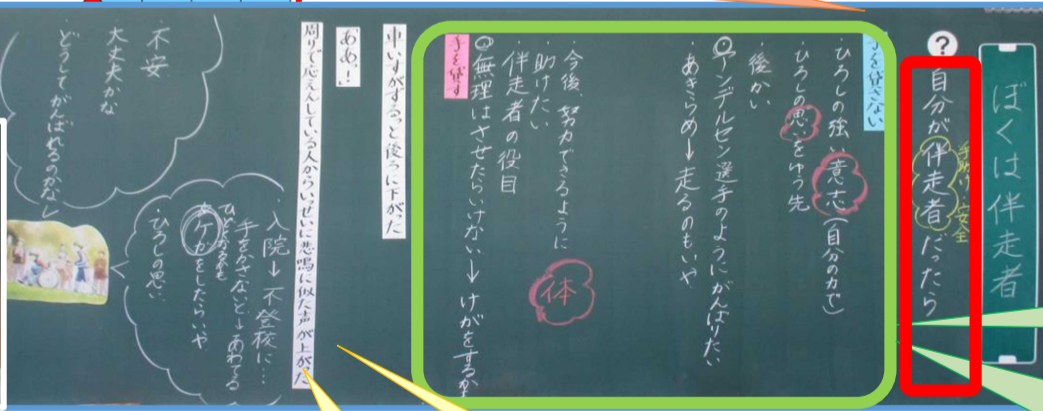 ぼくは伴走者
?自分が伴走者だったら
手助け 安全
手を貸さない
・ひろしの強い意志(自分の力で)
・ひろしの思いをゆう先
・後かい
◎アンデルセン選手のようにがんばりたい
・あきらめ→走るのもいや
・今後、努力できるように
・助けたい
伴走者の役目
体
◎無理はさせたらいけない→けがをするか
手を貸す
車いすがずるっと後ろに下がった
「ああっ!」
周りで応えんしている人からいっせいに悲鳴に似た声が上がった
・入院→不登校に…
手をかさないと→あわてる
ケガをしたらいや
・ひろしの思い
・不安
大丈夫かな
どうしてがんばれるのかな